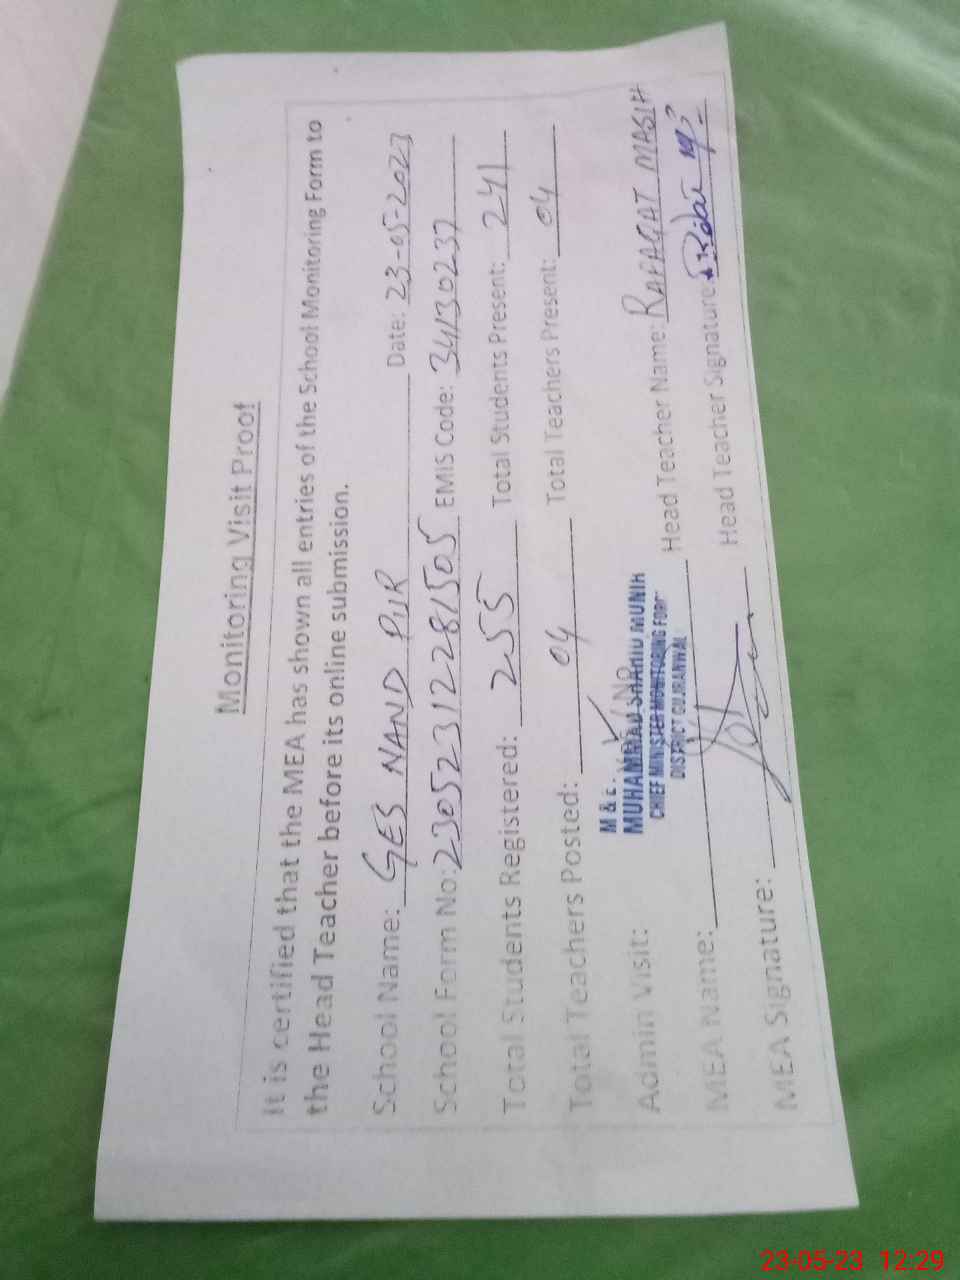 Monitoring Visit Proof
It is certified that the MEA has shown all entries of the School Monitoring Form to
the Head Teacher before its online submission.
School Name: GES NAND PUR Date: 23-05-2023
School Form No: 230523122281505 EMIS Code: 34130237
Total Students Registered: 255 Total Students Present: 241
Total Teachers Posted: 04 Total Teachers Present: 04
Admin Visit:
M & E.
MUHAMMAD SHAHID MUNIR
CHIEF MINISTER MONITORING FORC
DISTRICT GUJRANWAL
MEA Name: Head Teacher Name: RAFAQAT MASIH
MEA Signature: Head Teacher Signature:
23-05-23 12:29